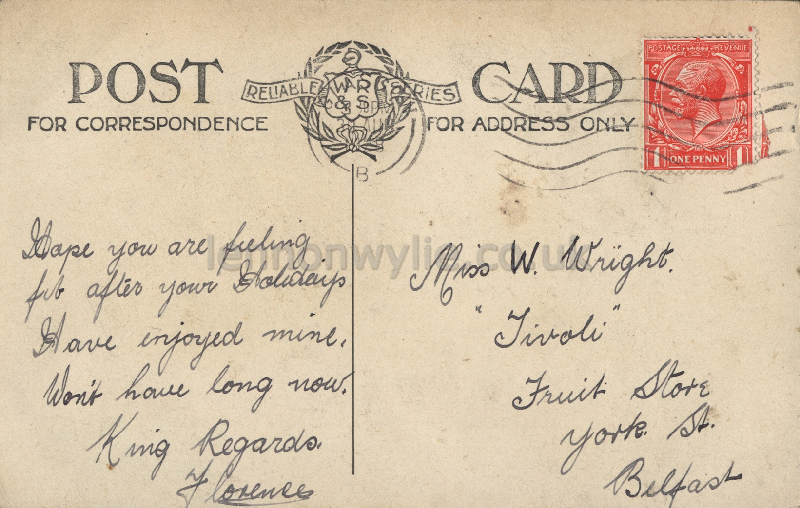 POST CARD
RELIABLE WR&S SERIES
FOR CORRESPONDENCE
FOR ADDRESS ONLY
POSTAGE REVENUE
1 ONE PENNY 1
B
lennonwylie.co.uk
Hope you are feeling
fit after your Holidays
Have enjoyed mine.
Won't have long now.
King Regards.
Florence
Miss W. Wright.
"Tivoli"
Fruit Store
York St.
Belfast